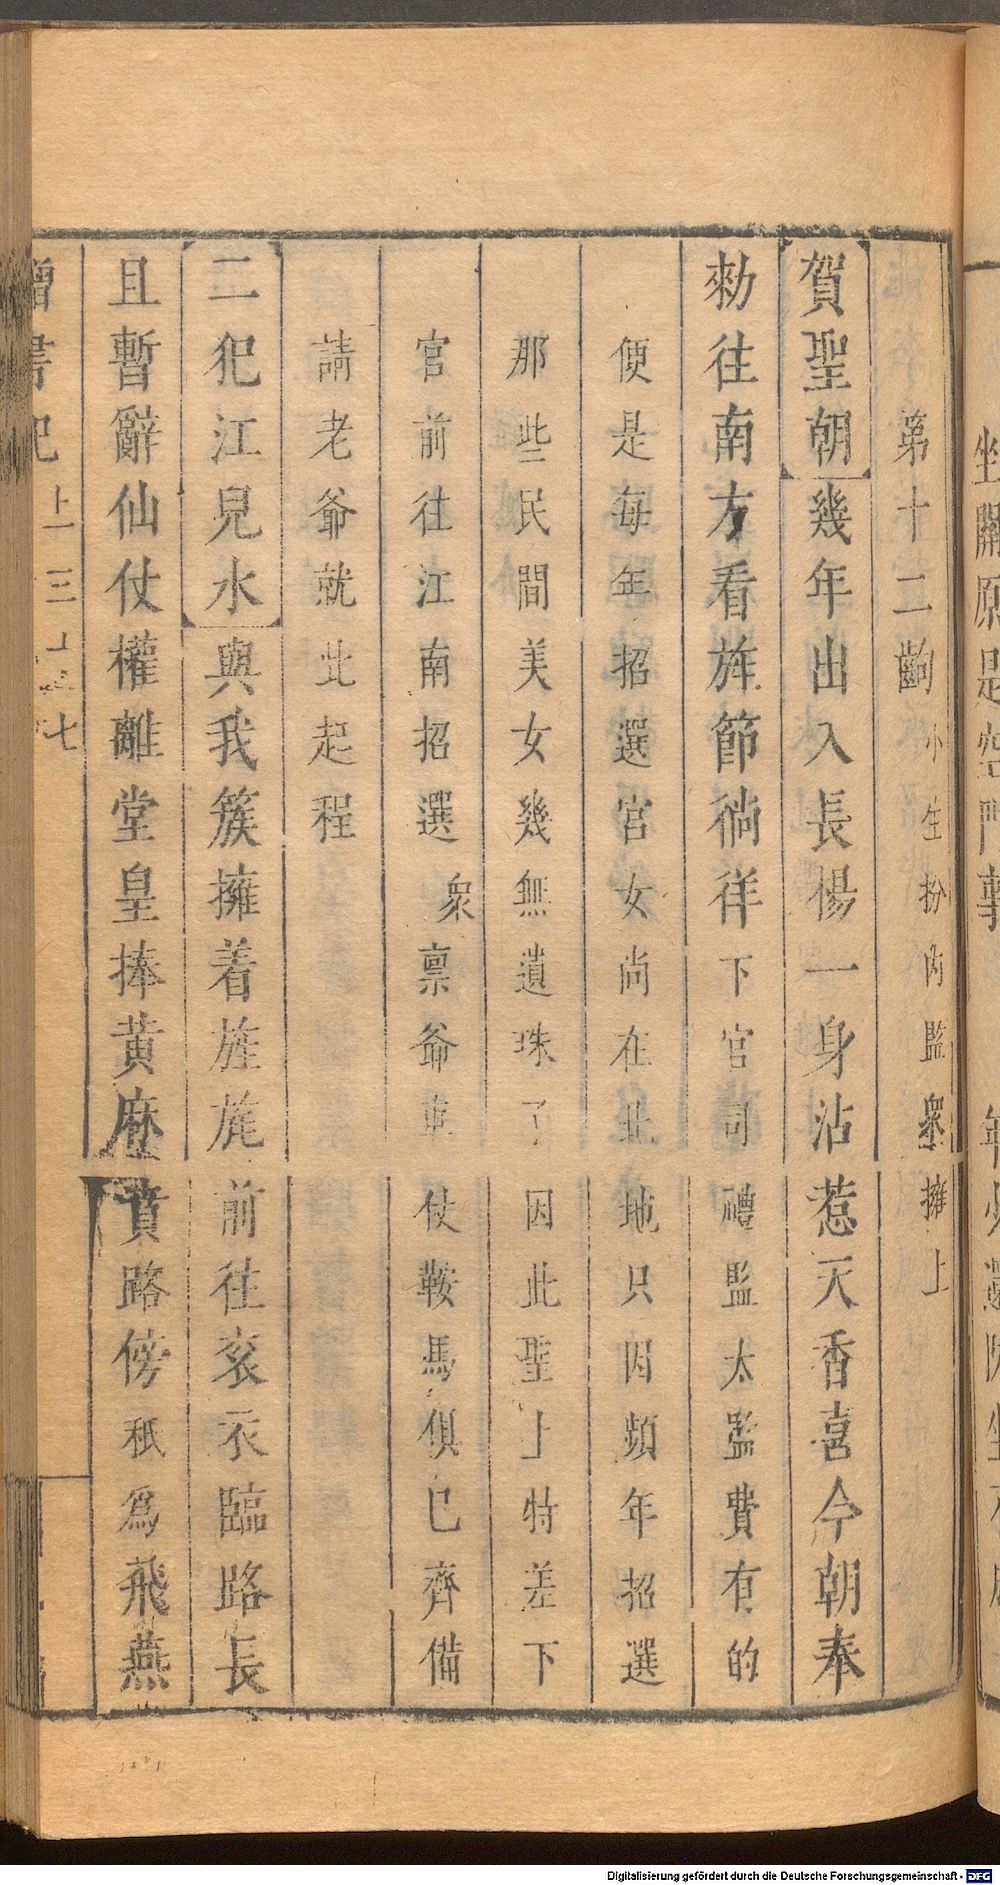 第十二齣 小生扮內監衆擁上
賀聖朝幾年出入長楊一身沾惹天香喜今朝奉
勑往南方看旌節徜徉下官司禮監太監費有的
便是每年招選宮女尚在北地只因頻年招選
那些民間美女幾無遺珠了因此聖上特差下
官前往江南招選衆禀爺車仗鞍馬俱已齊備
請老爺就此起程
二犯江兒水與我簇擁着旌旄前往衮衣臨路長
且暫辭仙仗權離堂皇捧黃麻賁路傍秖為飛燕
書記 上 三 七
坐關原是空門事
Digitalisierung gefördert durch die Deutsche Forschungsgemeinschaft - DFG